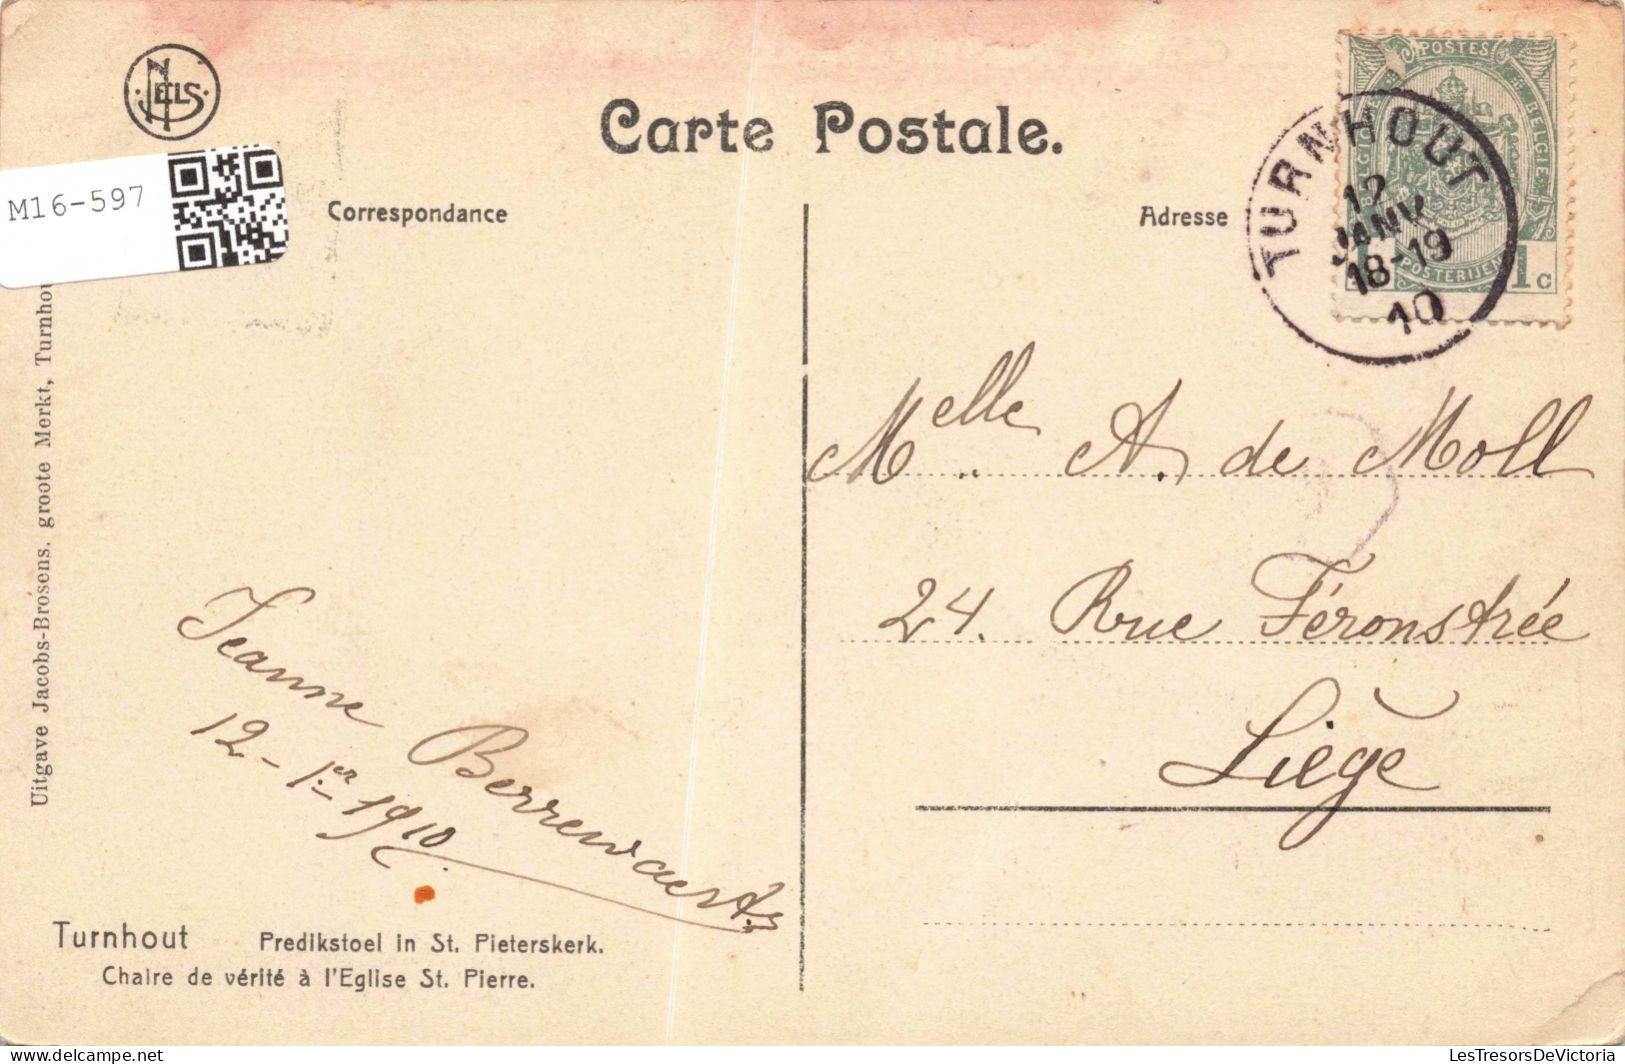 NELS
Carte Postale.
POSTES
BELGIQUE
BELGIE
POSTERIJEN
1 c
TURNHOUT
12
JANV
18-19
10
M16-597
Correspondance
Adresse
Uitgave Jacobs-Brosens. groote Merkt, Turnhou
Melle A. de Moll
24. Rue Féronstrée
Liége
Jeanne Berrewaerts
12-1er 1910
Turnhout Predikstoel in St. Pieterskerk.
Chaire de vérité à l'Eglise St. Pierre.
LesTresorsDeVictoria
© LesTresorsDeVictoria.com